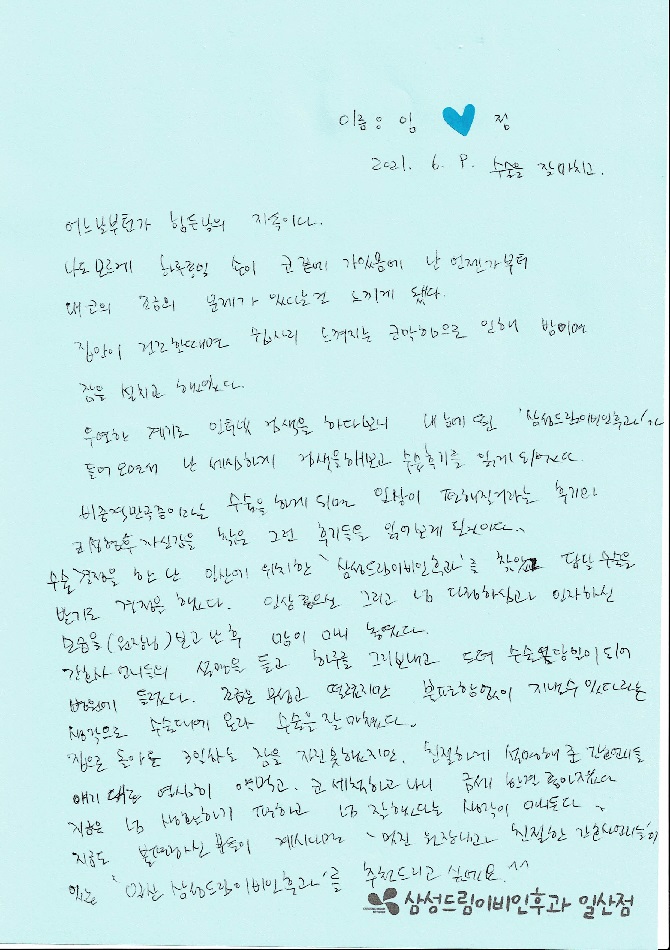 이름 : 임 ♥ 점
2021. 6. 8. 수술을 잘마치고.
어느날부턴가 힘든날의 지속이다.
나도모르게 하루종일 손이 코끝에 가있음에 난 언젠가부터
내 코의 조금의 문제가 있다는걸 느끼게 됐다.
집안이 건조할때면 쉽사리 느껴지는 코막힘으로 인해 밤이면
잠을 설치고 했었다.
우연한 계기로 인터넷 검색을 하다보니 내눈에 띈 '삼성드림이비인후과'가
들어오면서 난 세심하게 검색을해보고 수술후기를 읽게 되었다.
비중격만곡증이라는 수술을 하게되면 일상이 편해질거라는 후기와
코성형후 자신감을 찾은 그런 후기들을 읽어보게 된것이다.
수술 결정을 한 난 일산에 위치한 '삼성드림이비인후과'를 찾았고 담당 수술을
받기로 결정을 했다. 인상 좋으신 그리고 넘 다정하시고 인자하신
모습을 (원장님) 보고 난 후 맘이 마니 놓였다.
간호사 언니들의 설명을 듣고 하루를 그리보내고 드뎌 수술당일이 되어
병원에 들렀다. 조금은 무섭고 떨렸지만 불편함없이 지낼수 있다라는
생각으로 수술대에 올라 수술을 잘 마쳤다.
집으로 돌아온 3일차도 잠을 자진 못했지만, 친절하게 설명해 준 간호언니들
얘기 대로 열심히 약먹고, 코 세척하고 나니 금세 한결 좋아졌다
지금은 넘 시원하기 편하고 넘 잘했다는 생각이 마니든다.
지금도 불편하신 분들이 계시다면 '멋진 원장님과 친절한 간호사언니들'이
있는 '일산 삼성드림이비인후과'를 추천드리고 싶네요.^^
삼성드림이비인후과 일산점